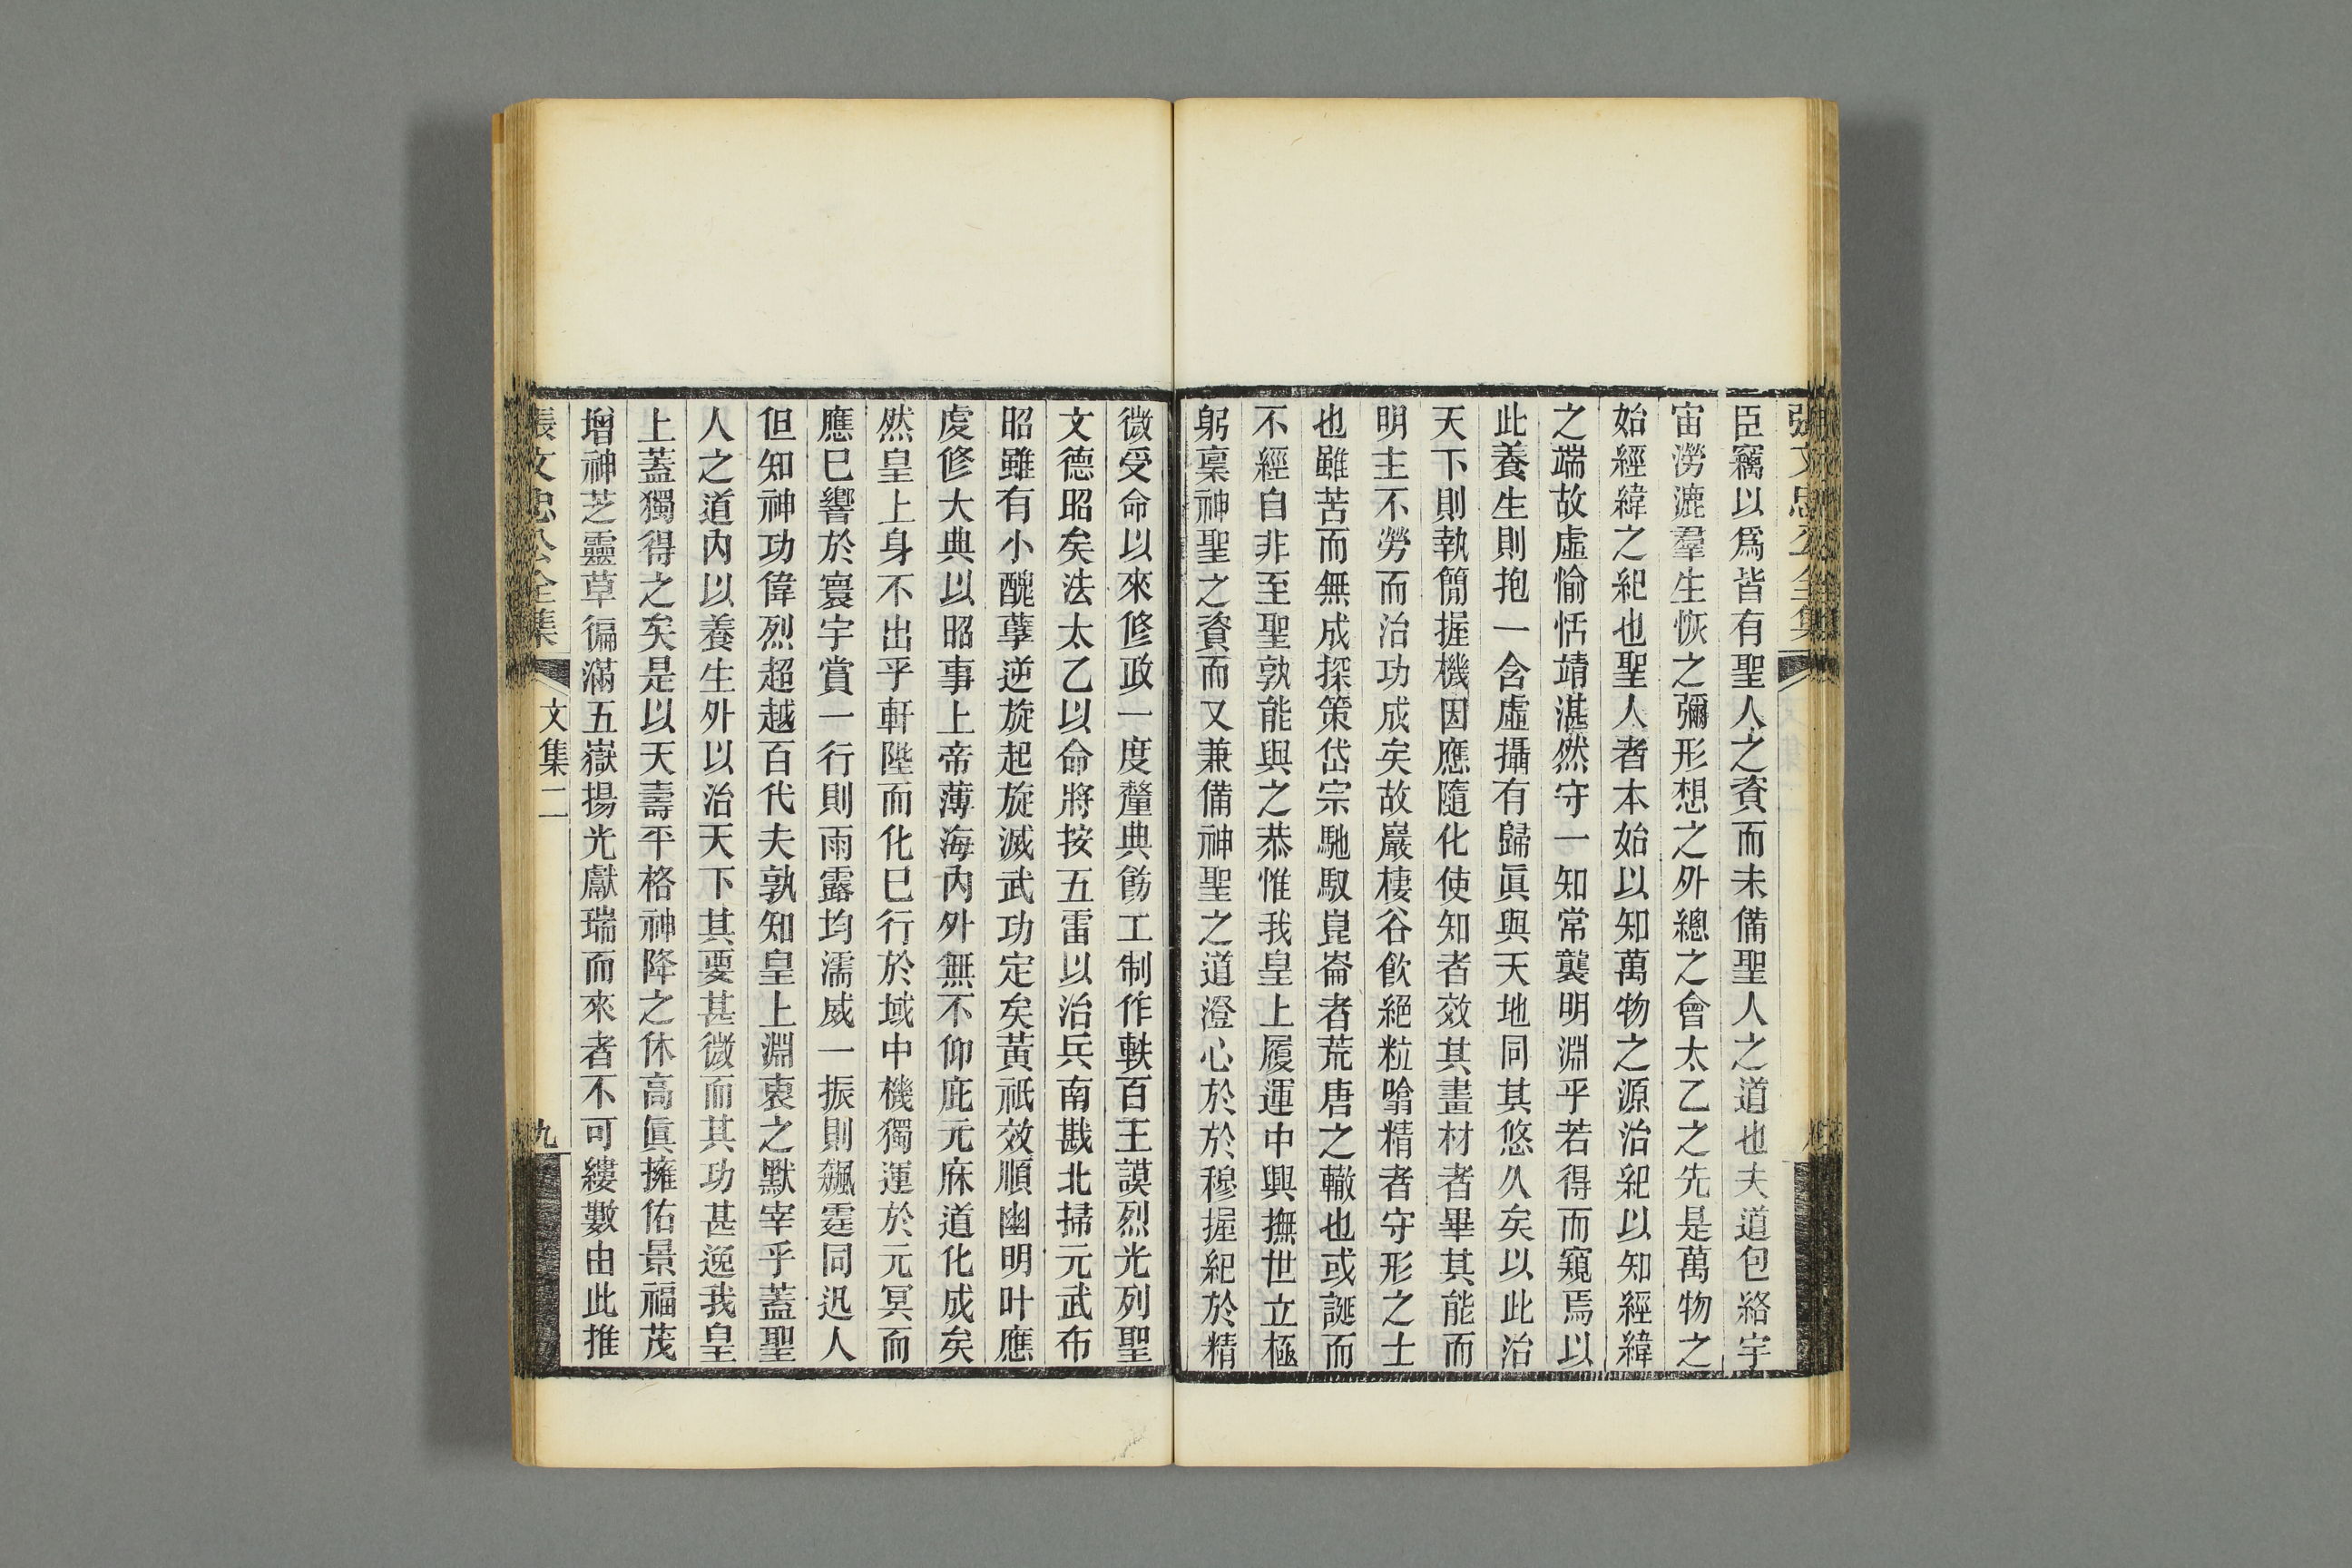 張文忠公全集
臣竊以爲皆有聖人之資而未備聖人之道也夫道包絡宇
宙澇漉羣生恢之彌形想之外總之會太乙之先是萬物之
始經緯之紀也聖人者本始以知萬物之源治紀以知經緯
之端故虛愉恬靖湛然守一知常襲明淵乎若得而窺焉以
此養生則抱一含虛攝有歸眞與天地同其悠久矣以此治
天下則執簡握機因應隨化使知者效其畫材者畢其能而
明主不勞而治功成矣故巖棲谷飮絕粒噏精者守形之士
也雖苦而無成探策岱宗馳馭崑崙者荒唐之轍也或誕而
不經自非至聖孰能與之恭惟我皇上履運中興撫世立極
躬稟神聖之資而又兼備神聖之道澄心於於穆握紀於精
微受命以來修政一度釐典飭工制作軼百王謨烈光列聖
文德昭矣法太乙以命將按五雷以治兵南戡北掃元武布
昭雖有小醜孽逆旋起旋滅武功定矣黃祇效順幽明叶應
虔修大典以昭事上帝薄海內外無不仰庇元庥道化成矣
然皇上身不出乎軒陛而化巳行於域中機獨運於元冥而
應巳響於寰宇賞一行則雨露均濡威一振則飆霆同迅人
但知神功偉烈超越百代夫孰知皇上淵衷之默宰乎蓋聖
人之道內以養生外以治天下其要甚微而其功甚逸我皇
上蓋獨得之矣是以天壽平格神降之休高眞擁佑景福茂
增神芝靈草徧滿五嶽揚光獻瑞而來者不可縷數由此推
張文忠公全集
文集二
九